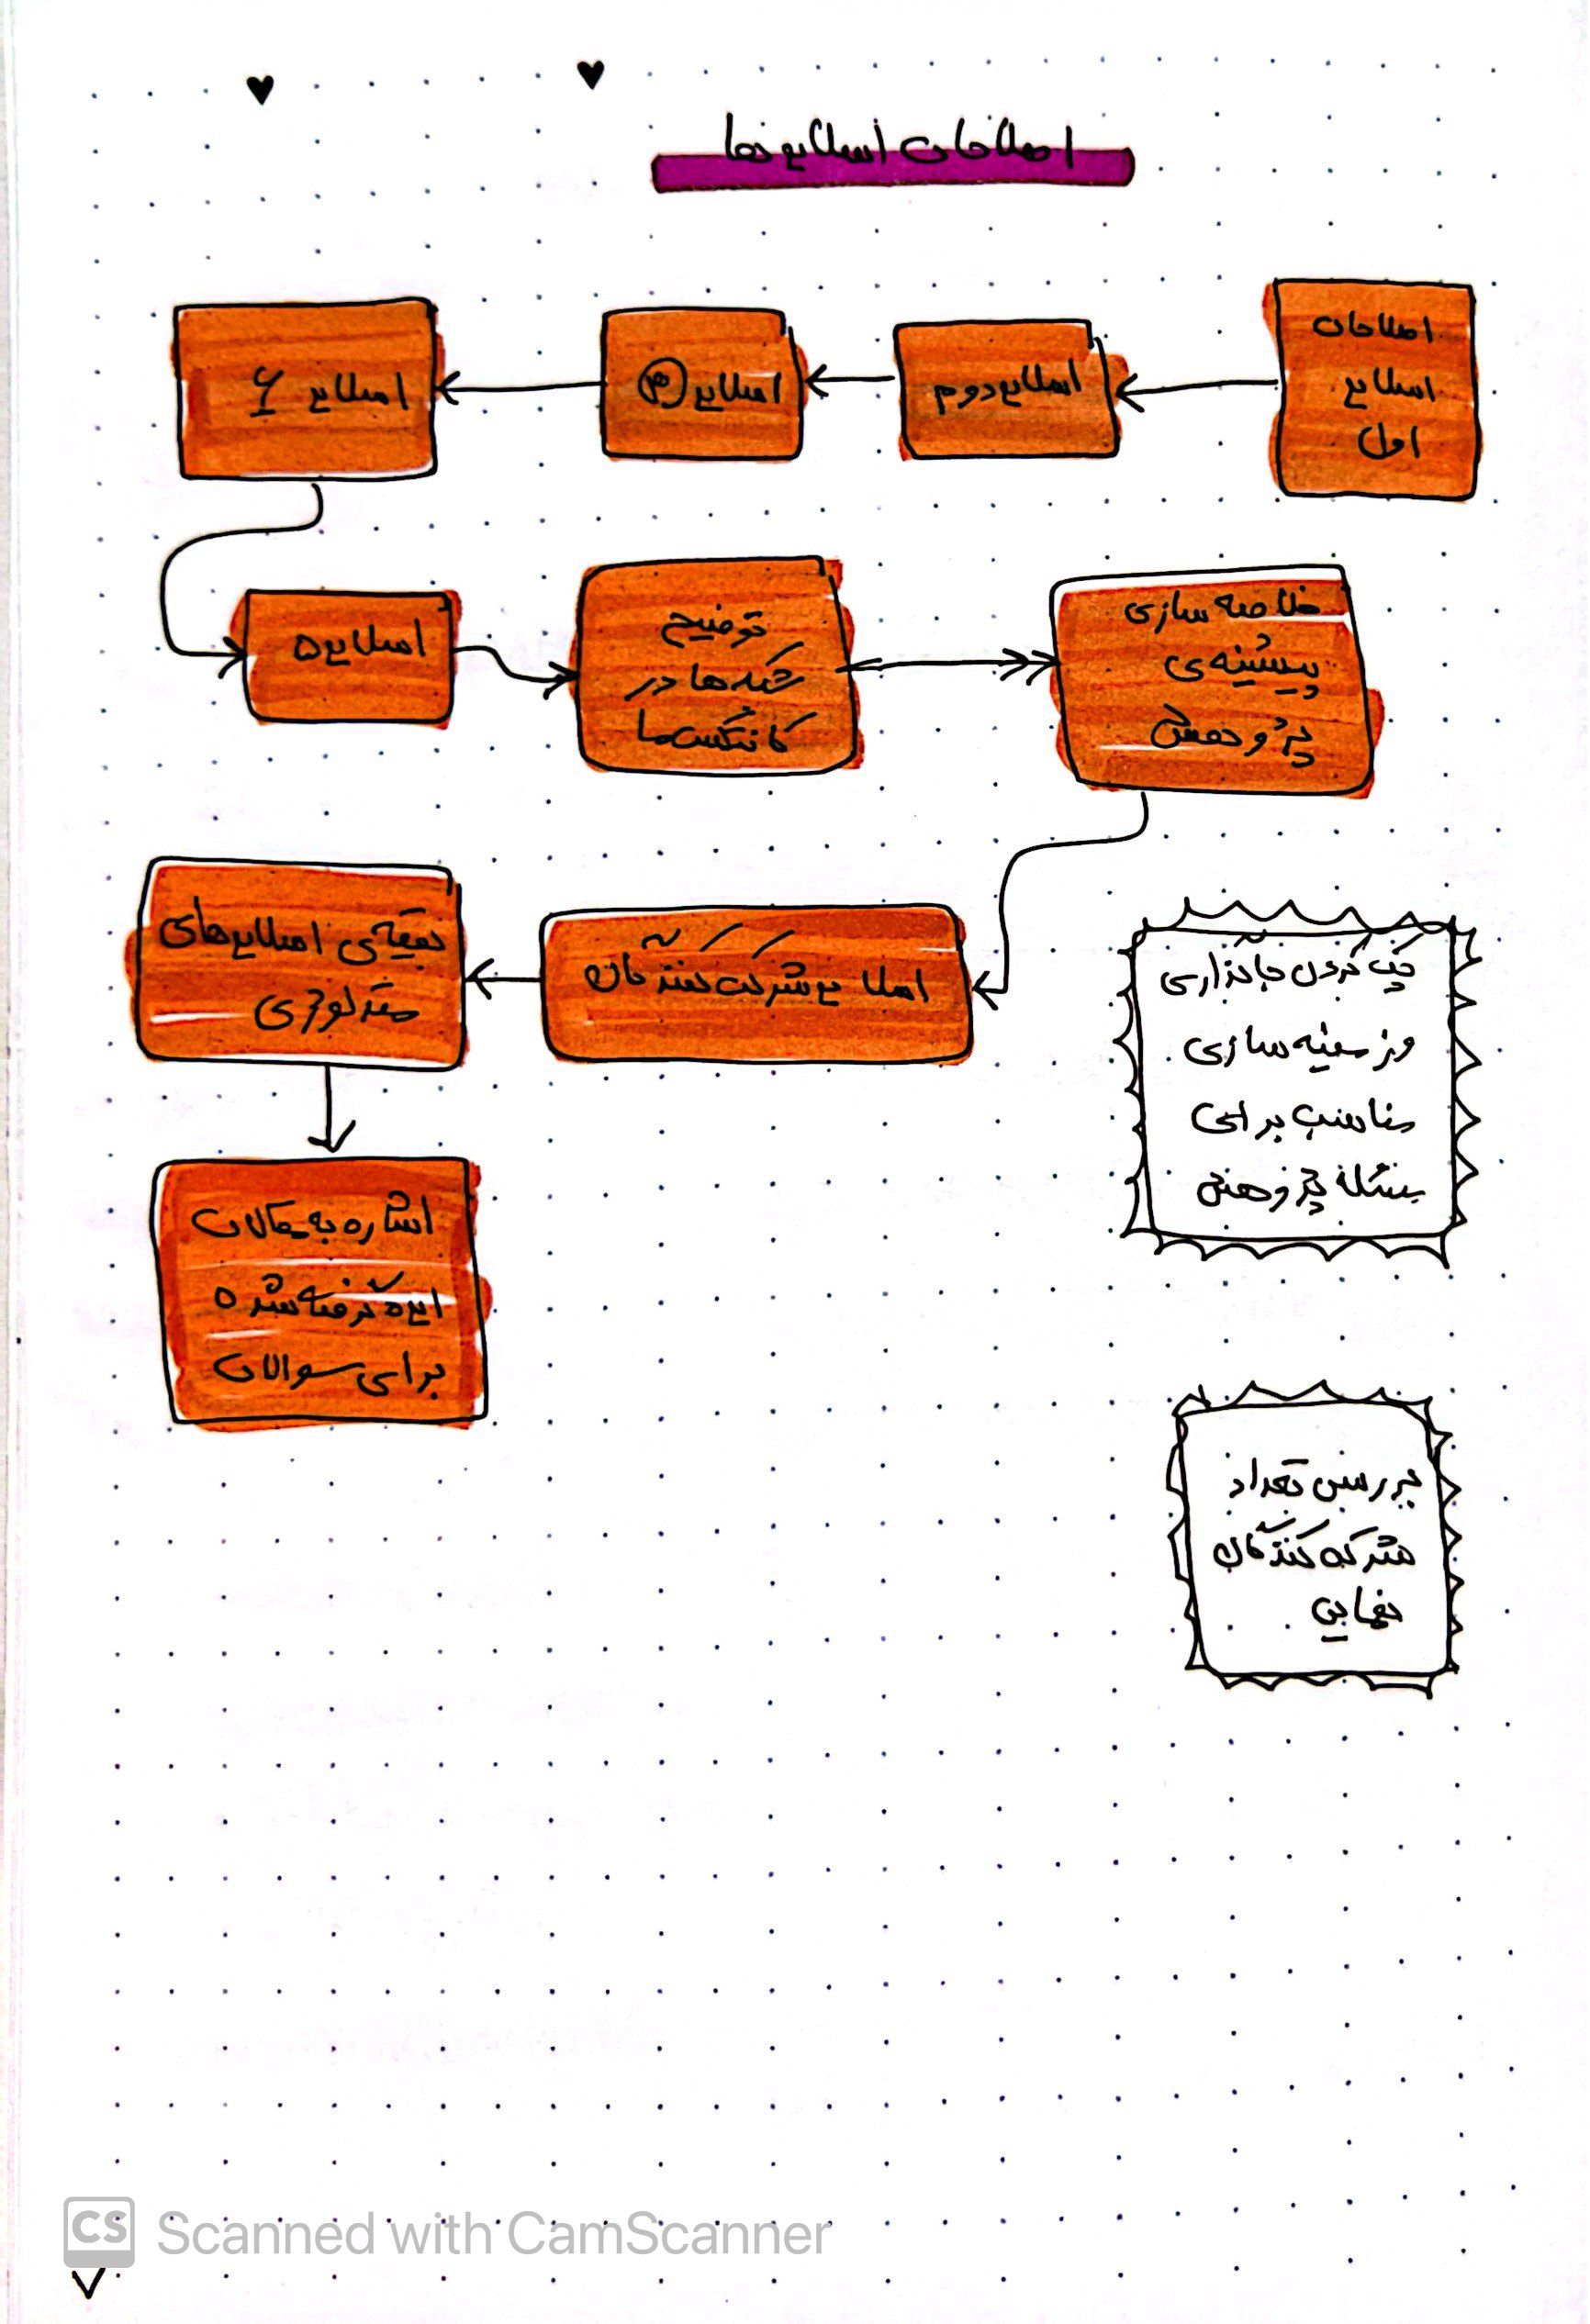 اصلاحات اسلایدها
اصلاحات
اسلاید
اول
اسلاید دوم
اسلاید ۳
اسلاید ۴
اسلاید ۵
توضیح
شبکه‌ها در
کانتکست ما
خلاصه سازی
پیشینه‌ی
پژوهش
اسلاید شرکت کنندگان
بقیه‌ی اسلایدهای
متدلوژی
اشاره به مقالات
ایده گرفته شده
برای سوالات
چک کردن جاگذاری
و زمینه سازی
مناسب برای
مسئله پژوهش
بررسی تعداد
شرکت کنندگان
نهایی
CS Scanned with CamScanner
۷